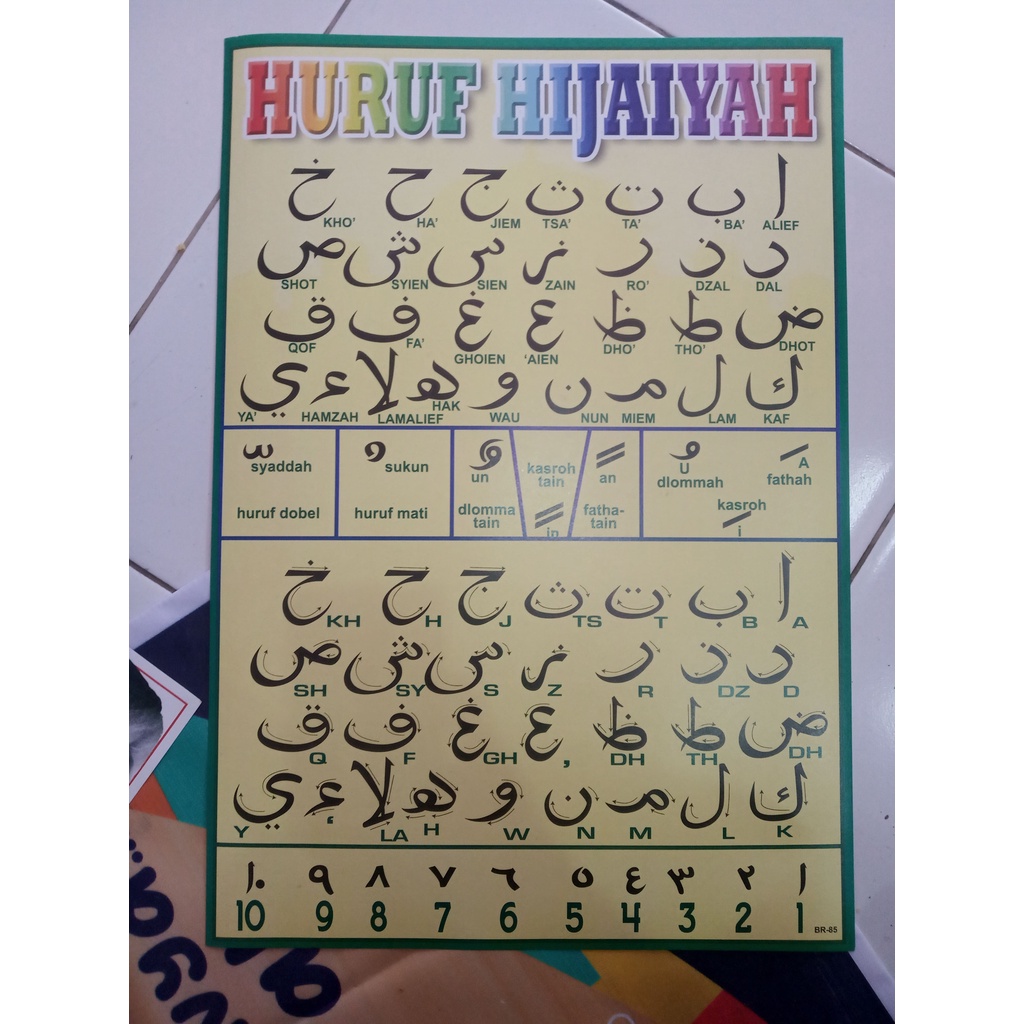 HURUF HIJAIYAH
ا ب ت ث ج ح خ
ALIEF BA' TA' TSA' JIEM HA' KHO'
د ذ ر ز س ش ص
DAL DZAL RO' ZAIN SIEN SYIEN SHOT
ض ط ظ ع غ ف ق
DHOT THO' DHO' 'AIEN GHOIEN FA' QOF
ك ل م ن و ه لا ء ي
KAF LAM MIEM NUN WAU HAK LAMALIEF HAMZAH YA'
syaddah
huruf dobel
sukun
huruf mati
un
dlomma
tain
kasroh
tain
in
an
fatha-
tain
U
dlommah
A
fathah
kasroh
i
ا ب ت ث ج ح خ
A B T TS J H KH
د ذ ر ز س ش ص
D DZ R Z S SY SH
ض ط ظ ع غ ف ق
DH TH DH , GH F Q
ك ل م ن و ه لا ء ي
K L M N W H LA ‘ Y
١٠ ٩ ٨ ٧ ٦ ٥ ٤ ٣ ٢ ١
10 9 8 7 6 5 4 3 2 1
BR-85